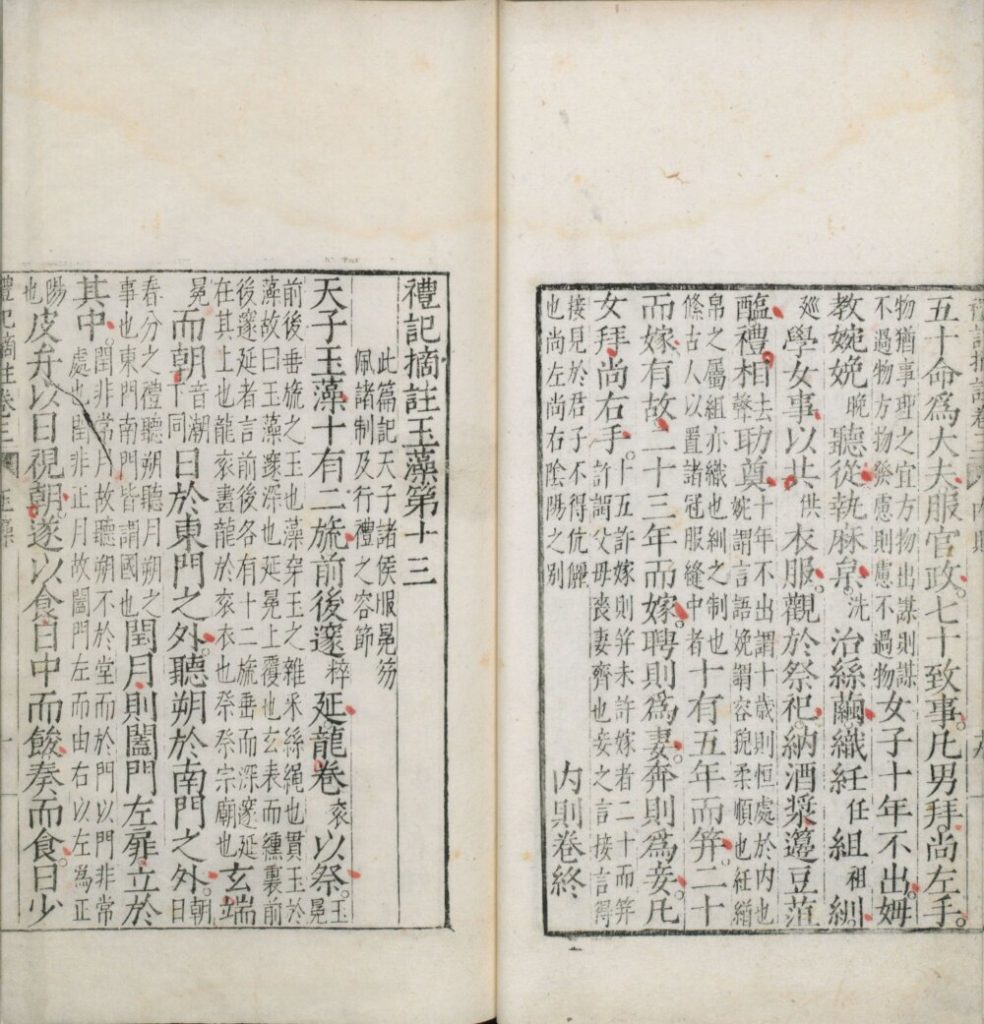 五十命爲大夫服官政。七十致事。凡男拜尚左手。
物猶事理之宜方物出謀則謀
不過物方物發慮則慮不過物
女子十年不出。姆
教婉娩晚聽從執麻枲。洗治絲繭織紝任組祖紃
廵學女事以共供衣服。觀於祭祀。納酒漿籩豆菹
醢禮相去聲助奠。
十年不出謂十歲則恒處於內也
婉謂言語娩謂容貌柔順也紝繒
帛之屬組亦織也紃之制也
絛古人以置諸冠服縫中者
十有五年而笄。二十
而嫁有故。二十三年而嫁。聘則爲妻。奔則爲妾。凡
女拜尚右手。
十五許嫁則笄未許嫁者二十而笄
許謂父母喪妻齊也妾之言接言得
接見於君子不得伉儷
也尚左尚右陰陽之別
內則卷終
禮記摘註玉藻第十三
此篇記天子諸侯服冕笏
佩諸制及行禮之容節
天子玉藻十有二旒。前後邃粹延龍卷袞以祭。
玉冕
前後垂旒之玉也藻穿玉之雜釆絲繩也貫玉於
藻故曰玉藻邃深也延冕上覆也玄表而纁裏前
後邃延者言前後各有十二旒垂而深邃延
在其上也龍袞畫龍於袞衣也祭祭宗廟也
玄端
冕而朝音潮下同日於東門之外。聽朔於南門之外。
朝日
春分之禮聽朔聽月朔之
事也東門南門皆謂國也
閏月則闔門左扉立於
其中。
閏非常月故聽朔不於堂而於門以門非常
處也閏非正月故闔門左而由右以左爲正
陽也
皮弁以日視朝。遂以食。日中而餕。奏而食。日少
禮記摘註卷三
玉藻
一